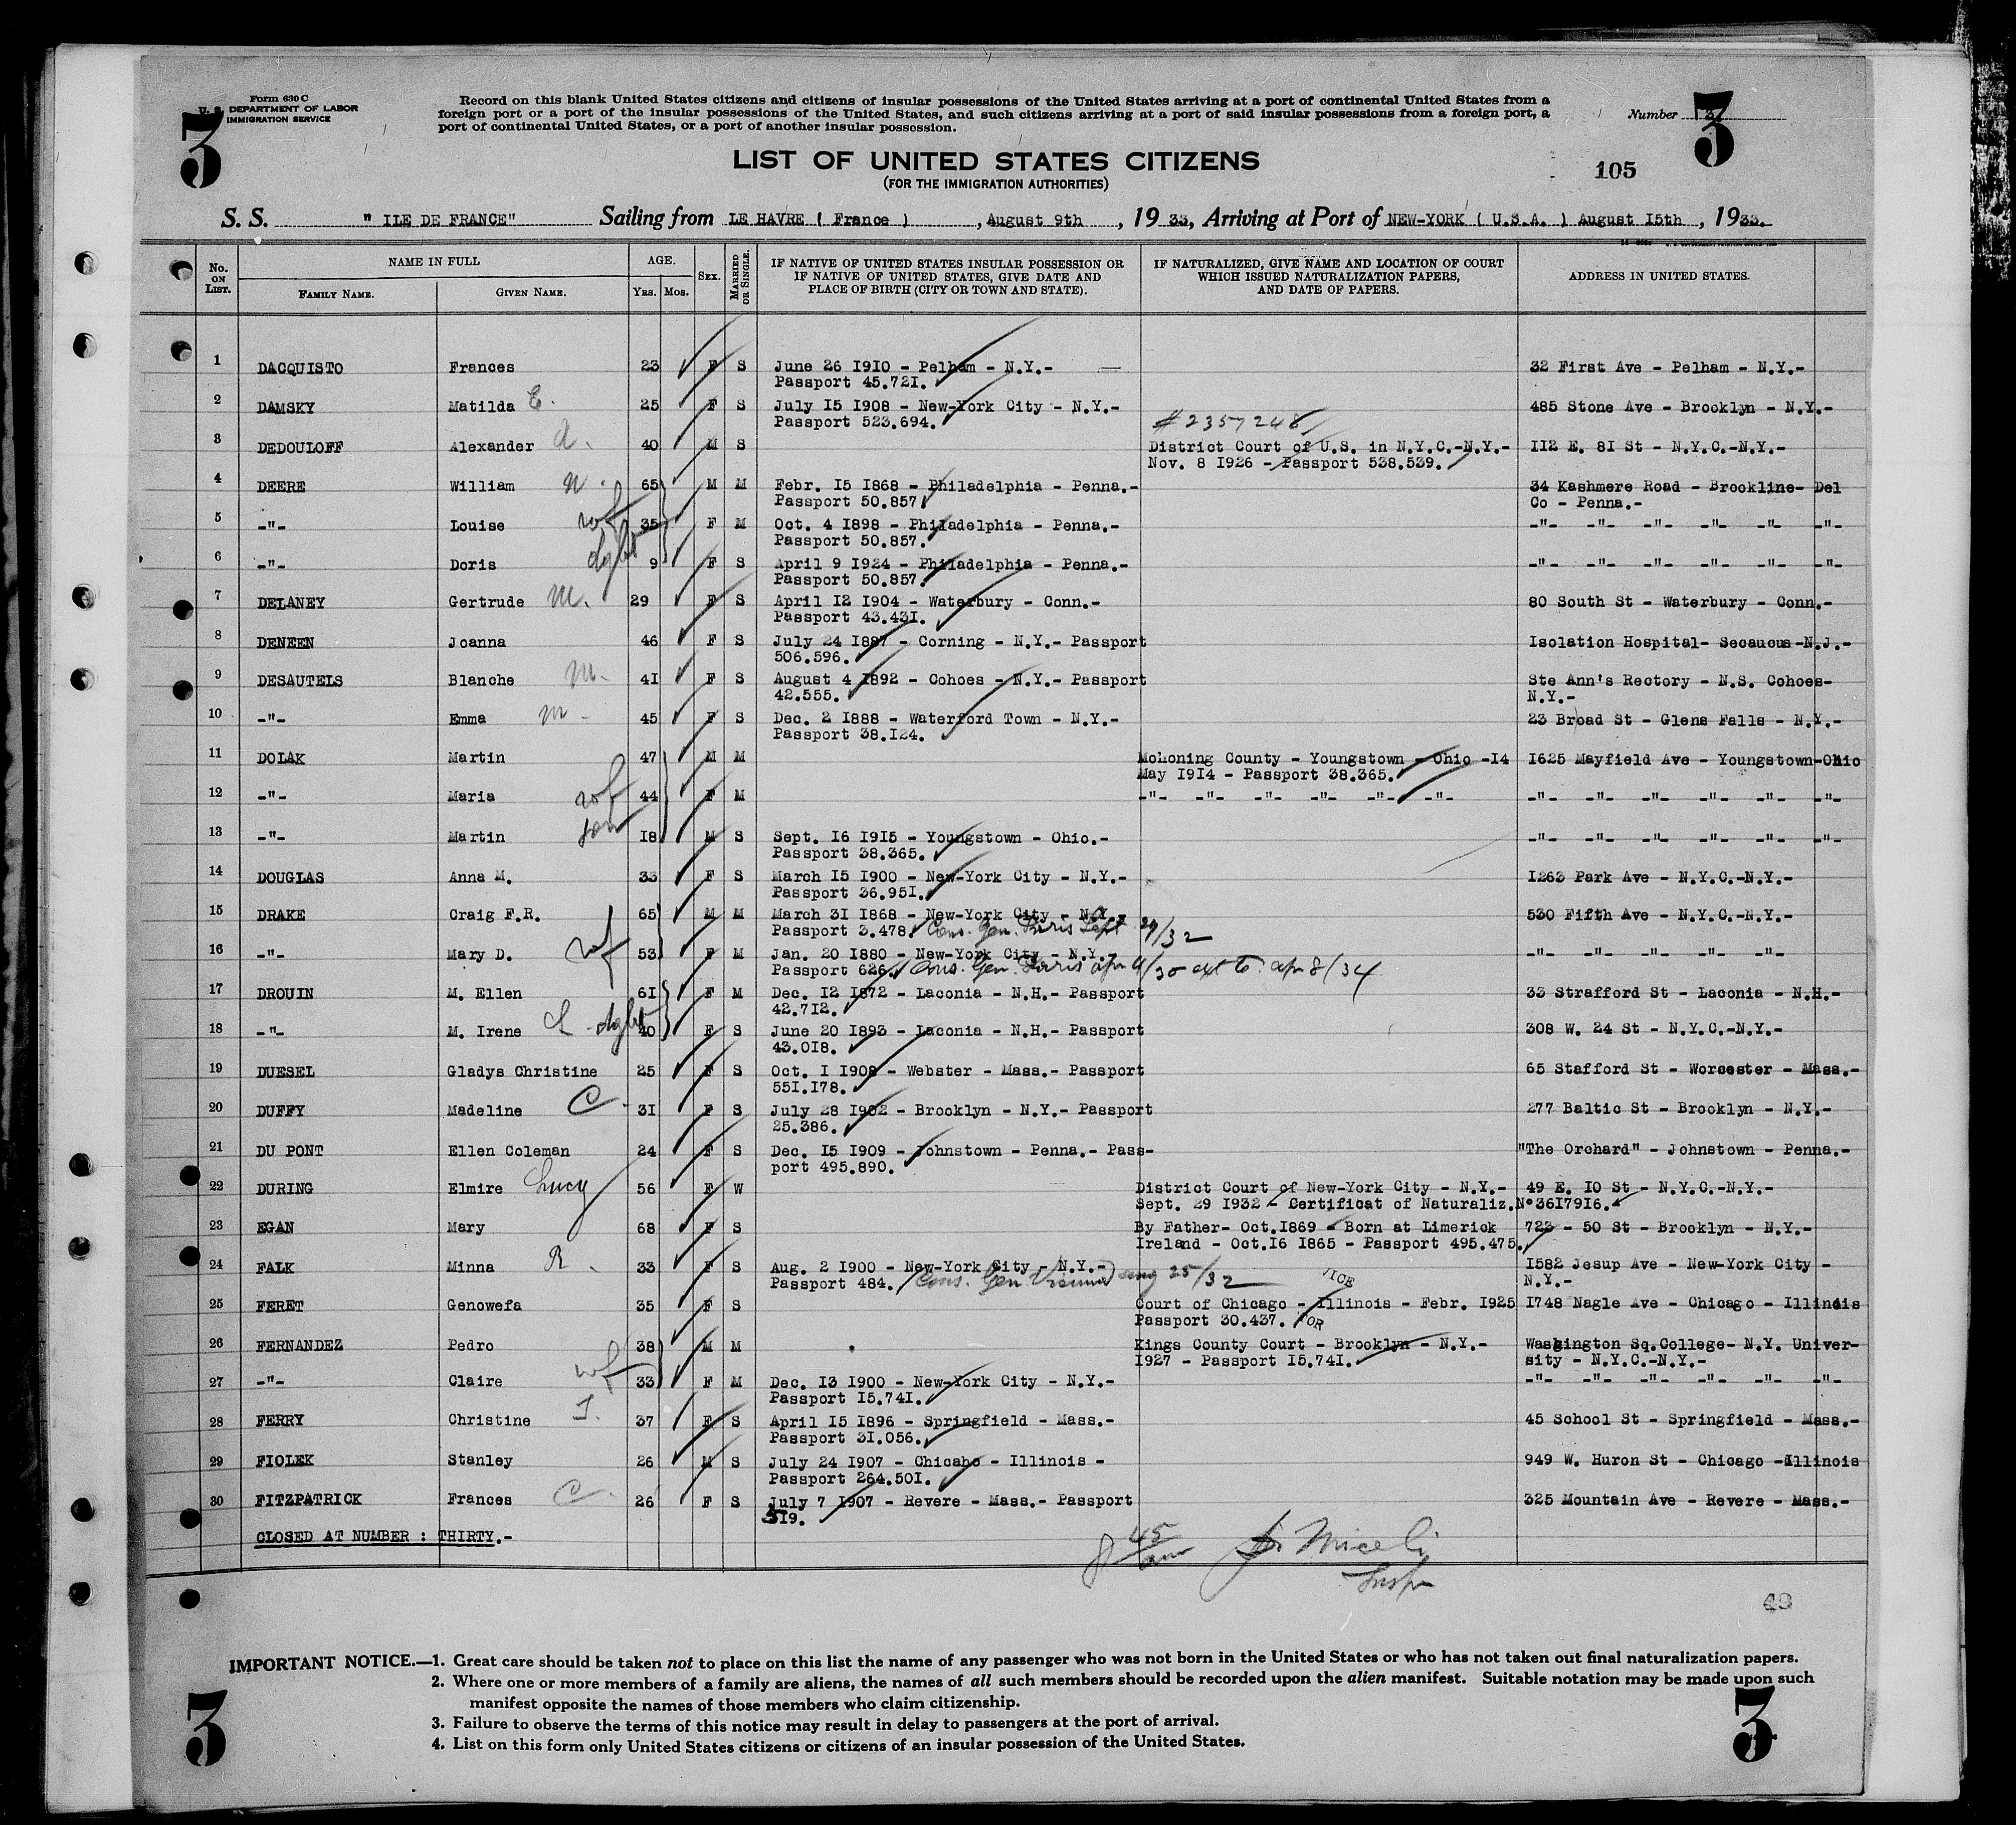 Form 630 C
U. S. DEPARTMENT OF LABOR
IMMIGRATION SERVICE
3
Record on this blank United States citizens and citizens of insular possessions of the United States arriving at a port of continental United States from a
foreign port or a port of the insular possessions of the United States, and such citizens arriving at a port of said insular possessions from a foreign port, a
port of continental United States, or a port of another insular possession.
Number 3
3
LIST OF UNITED STATES CITIZENS
(FOR THE IMMIGRATION AUTHORITIES)
105
S. S. " ILE DE FRANCE" Sailing from LE HAVRE ( France ) , August 9th , 19 33, Arriving at Port of NEW-YORK ( U.S.A. ) August I5th , 19 33.
No. ON LIST. NAME IN FULL AGE. SEX. MARRIED OR SINGLE. IF NATIVE OF UNITED STATES INSULAR POSSESSION OR IF NATIVE OF UNITED STATES, GIVE DATE AND PLACE OF BIRTH (CITY OR TOWN AND STATE). IF NATURALIZED, GIVE NAME AND LOCATION OF COURT WHICH ISSUED NATURALIZATION PAPERS, AND DATE OF PAPERS. ADDRESS IN UNITED STATES.
FAMILY NAME. GIVEN NAME. YRS. MOS.
1 DACQUISTO Frances 23 F S June 26 I9I0 - Pelham - N.Y.- 32 First Ave - Pelham - N.Y.-
Passport 45.72I.
2 DAMSKY Matilda E. 25 F S July I5 I908 - New-York City - N.Y.- 485 Stone Ave - Brooklyn - N.Y.-
Passport 523.694. # 2357248
3 DEDOULOFF Alexander A. 40 M S District Court of U.S. in N.Y.C.-N.Y.- II2 E. 8I St - N.Y.C.-N.Y.-
Nov. 8 I926 - Passport 538.539.
4 DEERE William W. 65 M M Febr. I5 I868 - Philadelphia - Penna.- 34 Kashmere Road - Brookline- Del
Passport 50.857 Co - Penna.-
5 -"- Louise wf 35 F M Oct. 4 I898 - Philadelphia - Penna.- -"- -"- -"- -"- -"- -"-
Passport 50.857.
6 -"- Doris dght 9 F S April 9 I924 - Philadelphia - Penna.- -"- -"- -"- -"- -"- -"-
Passport 50.857.
7 DELANEY Gertrude M. 29 F S April I2 I904 - Waterbury - Conn.- 80 South St - Waterbury - Conn.-
Passport 43.43I.
8 DENEEN Joanna 46 F S July 24 I887 - Corning - N.Y.- Passport Isolation Hospital- Secaucus-N.J.-
506.596.
9 DESAUTELS Blanche M. 4I F S August 4 I892 - Cohoes - N.Y.- Passport Ste Ann's Rectory - N.S. Cohoes-
42.555. N.Y.-
10 -"- Emma M. 45 F S Dec. 2 I888 - Waterford Town - N.Y.- 23 Broad St - Glens Falls - N.Y.-
Passport 38.I24.
11 DOLAK Martin 47 M M Mohoning County - Youngstown - Ohio -I4 I625 Mayfield Ave - Youngstown-Ohio
May I9I4 - Passport 38.365.
12 -"- Maria wf 44 F M -"- -"- -"- -"- -"- -"- -"- -"- -"- -"- -"- -"-
13 -"- Martin son I8 M S Sept. I6 I9I5 - Youngstown - Ohio.- -"- -"- -"- -"- -"- -"-
Passport 38.365.
14 DOUGLAS Anna M. 33 F S March I5 I900 - New-York City - N.Y.- I263 Park Ave - N.Y.C.-N.Y.-
Passport 36.95I.
15 DRAKE Craig F.R. 65 M M March 3I I868 - New-York City - N.Y.- 530 Fifth Ave - N.Y.C.-N.Y.-
Passport 3.478. Cons. Gen. Paris Sept 29/32
16 -"- Mary D. wf 53 F M Jan. 20 I880 - New-York City - N.Y.- -"- -"- -"- -"- -"-
Passport 626. Cons. Gen. Paris apr 9/30 ext to apr 8/34
17 DROUIN M. Ellen 6I F M Dec. I2 I872 - Laconia - N.H.- Passport 33 Strafford St - Laconia - N.H.-
42.7I2.
18 -"- M. Irene L dght 40 F S June 20 I893 - Laconia - N.H.- Passport 308 W. 24 St - N.Y.C.-N.Y.-
43.0I8.
19 DUESEL Gladys Christine 25 F S Oct. I I908 - Webster - Mass.- Passport 65 Stafford St - Worcester - Mass.-
55I.I78.
20 DUFFY Madeline C. 3I F S July 28 I902 - Brooklyn - N.Y.- Passport 277 Baltic St - Brooklyn - N.Y.-
25.386.
21 DU PONT Ellen Coleman 24 F S Dec. I5 I909 - Johnstown - Penna.- Pass- "The Orchard" - Johnstown - Penna.-
port 495.890.
22 DURING Elmire Lucy 56 F W District Court of New-York City - N.Y.- 49 E. I0 St - N.Y.C.-N.Y.-
Sept. 29 I932 - Certificat of Naturaliz.N°36I79I6.
23 EGAN Mary 68 F S By Father- Oct.I869 - Born at Limerick 723 - 50 St - Brooklyn - N.Y.-
Ireland - Oct.I6 I865 - Passport 495.475.
24 FALK Minna R. 33 F S Aug. 2 I900 - New-York City - N.Y.- I582 Jesup Ave - New-York City -
Passport 484. Cons. Gen. Vienna aug 25/32 N.Y.-
25 FERET Genowefa 35 F S Court of Chicago - Illinois - Febr. I925 I748 Nagle Ave - Chicago - Illinois
Passport 30.437.
26 FERNANDEZ Pedro 38 M M Kings County Court - Brooklyn - N.Y.- Washington Sq.College- N.Y. Univer-
I927 - Passport I5.74I. sity - N.Y.C.-N.Y.-
27 -"- Claire wf 33 F M Dec. I3 I900 - New-York City - N.Y.- -"- -"- -"- -"- -"- -"-
Passport I5.74I.
28 FERRY Christine T. 37 F S April I5 I896 - Springfield - Mass.- 45 School St - Springfield - Mass.-
Passport 3I.056.
29 FIOLEK Stanley 26 M S July 24 I907 - Chicaho - Illinois - 949 W. Huron St - Chicago -Illinois
Passport 264.50I.
30 FITZPATRICK Frances C. 26 F S July 7 I907 - Revere - Mass.- Passport 325 Mountain Ave - Revere - Mass.-
5I9.
CLOSED AT NUMBER : THIRTY.-
8 45/am Miceli
Inspr
49
IMPORTANT NOTICE.—1. Great care should be taken not to place on this list the name of any passenger who was not born in the United States or who has not taken out final naturalization papers.
2. Where one or more members of a family are aliens, the names of all such members should be recorded upon the alien manifest. Suitable notation may be made upon such
manifest opposite the names of those members who claim citizenship.
3. Failure to observe the terms of this notice may result in delay to passengers at the port of arrival.
4. List on this form only United States citizens or citizens of an insular possession of the United States.
3
3